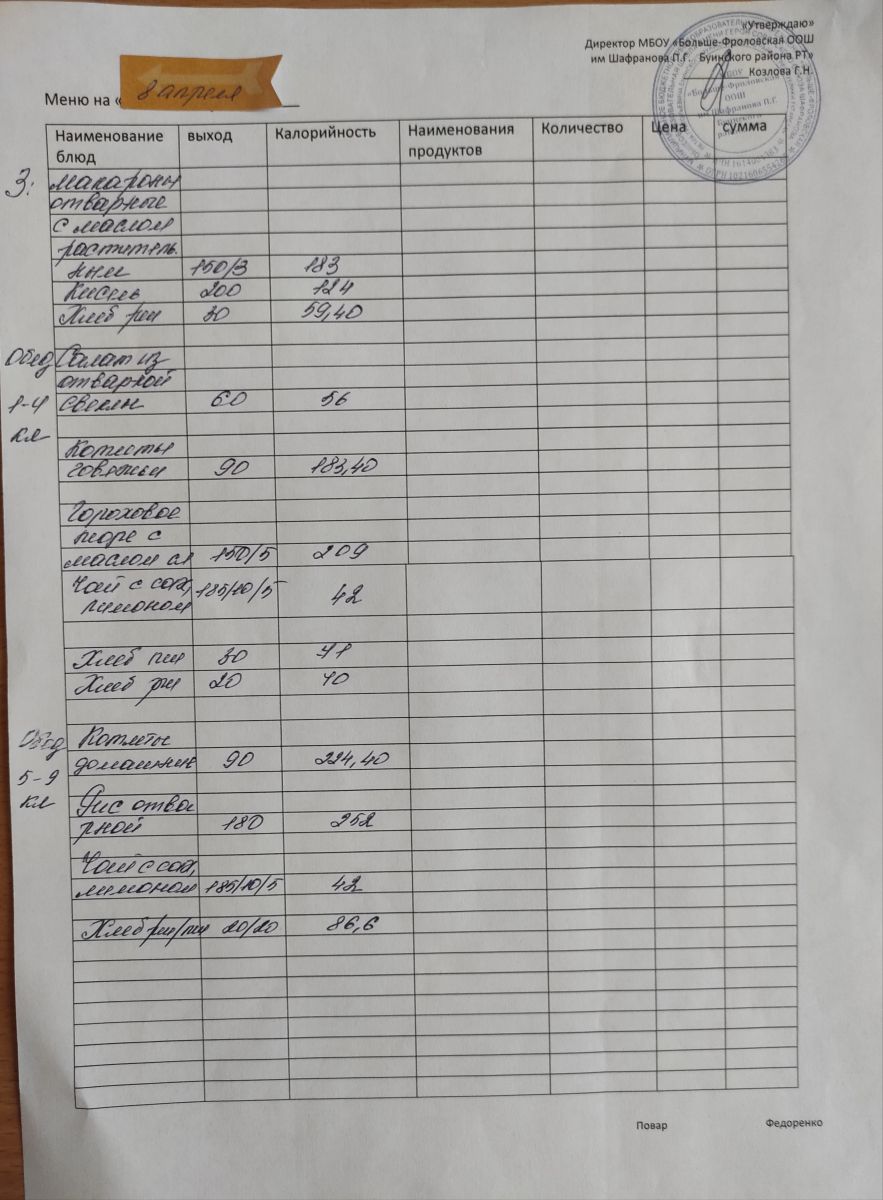 «Утверждаю»
Директор МБОУ «Больше-Фроловская ООШ
им Шафранова П.Г. Буинского района РТ»
Козлова Г.Н.
Меню на « 8 апреля
Наименование блюд выход Калорийность Наименования продуктов Количество Цена сумма
З: макароны
отварные
с маслом
раститель.
ным 150/3 183
Кисель 200 124
Хлеб рж 30 59,40
Обед Салат из
отварной
1-4 свеклы 60 56
кл
Котлеты
говяжьи 90 183,40
Гороховое
пюре с
маслом сл 150/5 209
Чай с сах, 185/10/5 42
лимоном
Хлеб пш 30 71
Хлеб рж 20 40
Обед Котлеты
домашние 90 224,40
5-9
кл Рис отва
рной 180 252
Чай с сах,
лимоном 185/10/5 42
Хлеб рж/пш 20/20 86,6
Повар Федоренко